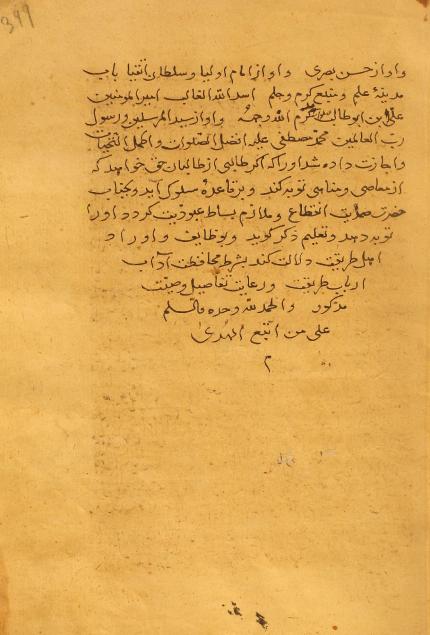 ۳۹۹
واو از حسن بصری واو از امام اولیا و سلطان اتقیا باب
مدینهٔ علم و منبع کرم و حلم اسد الله الغالب امیر المومنین
علی ابن ابوطالب کرم الله وجهه واو از سید المرسلین و رسول
رب العالمین محمد مصطفی علیه افضل الصلوات و اکمل التحیات
و اجازت داده شد او را که اگر طالبی از طالبان حق خواهد که
از معاصی و مناهی توبه کند و بر قاعدهٔ سلوک آید و بجناب
حضرت صمدیت انقطاع و ملازم بساط عبودیت کردد او را
توبه دهد و تعلیم ذکر کوید و بوظایف و اوراد
اهل طریقت دلالت کند بشرط محافظت آداب
ارباب طریقت و رعایت تفاصیل وصیت
مذکور والحمد لله وحده والسلم
علی من اتبع الهدی
م